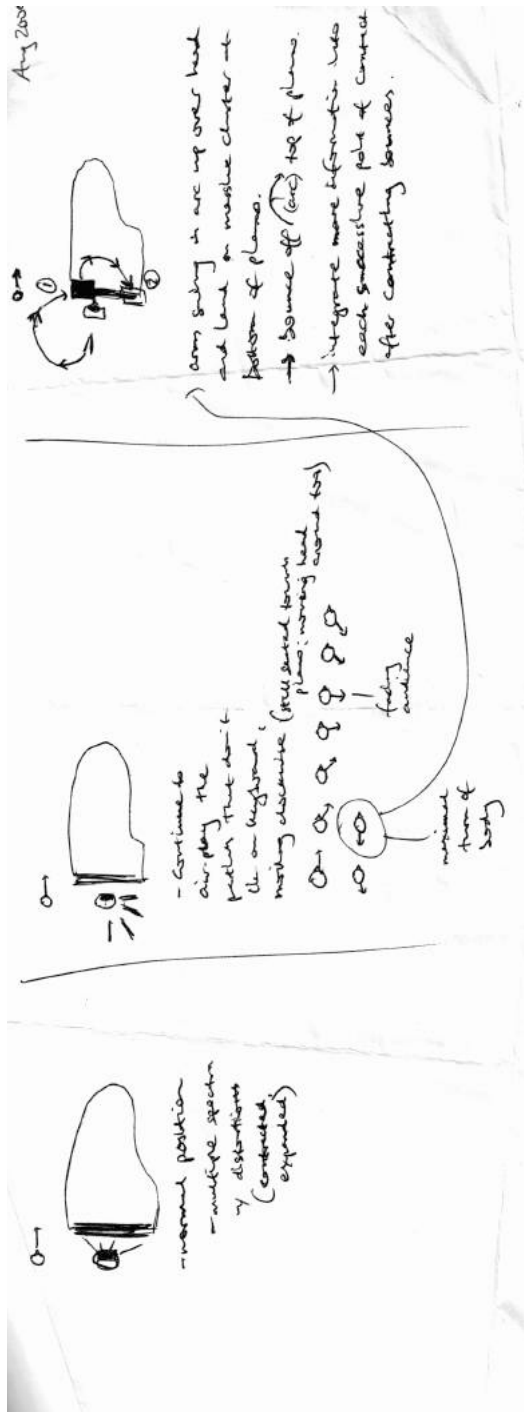 - normal position
- multiple spectra
w/ distortions
(contracted,
expanded)
- Continue to
air-play the
pitches that don't
lie on keyboard,
moving clockwise (still seated towards
piano; moving head
around too)
facing
audience
maximal
turn of
body
Aug 200
①
②
arms swing in arc up over head
and land on massive cluster at
bottom of piano.
→ bounce off (arc) top of piano.
→ integrate more information into
each successive point of contact
after contracting bounces.